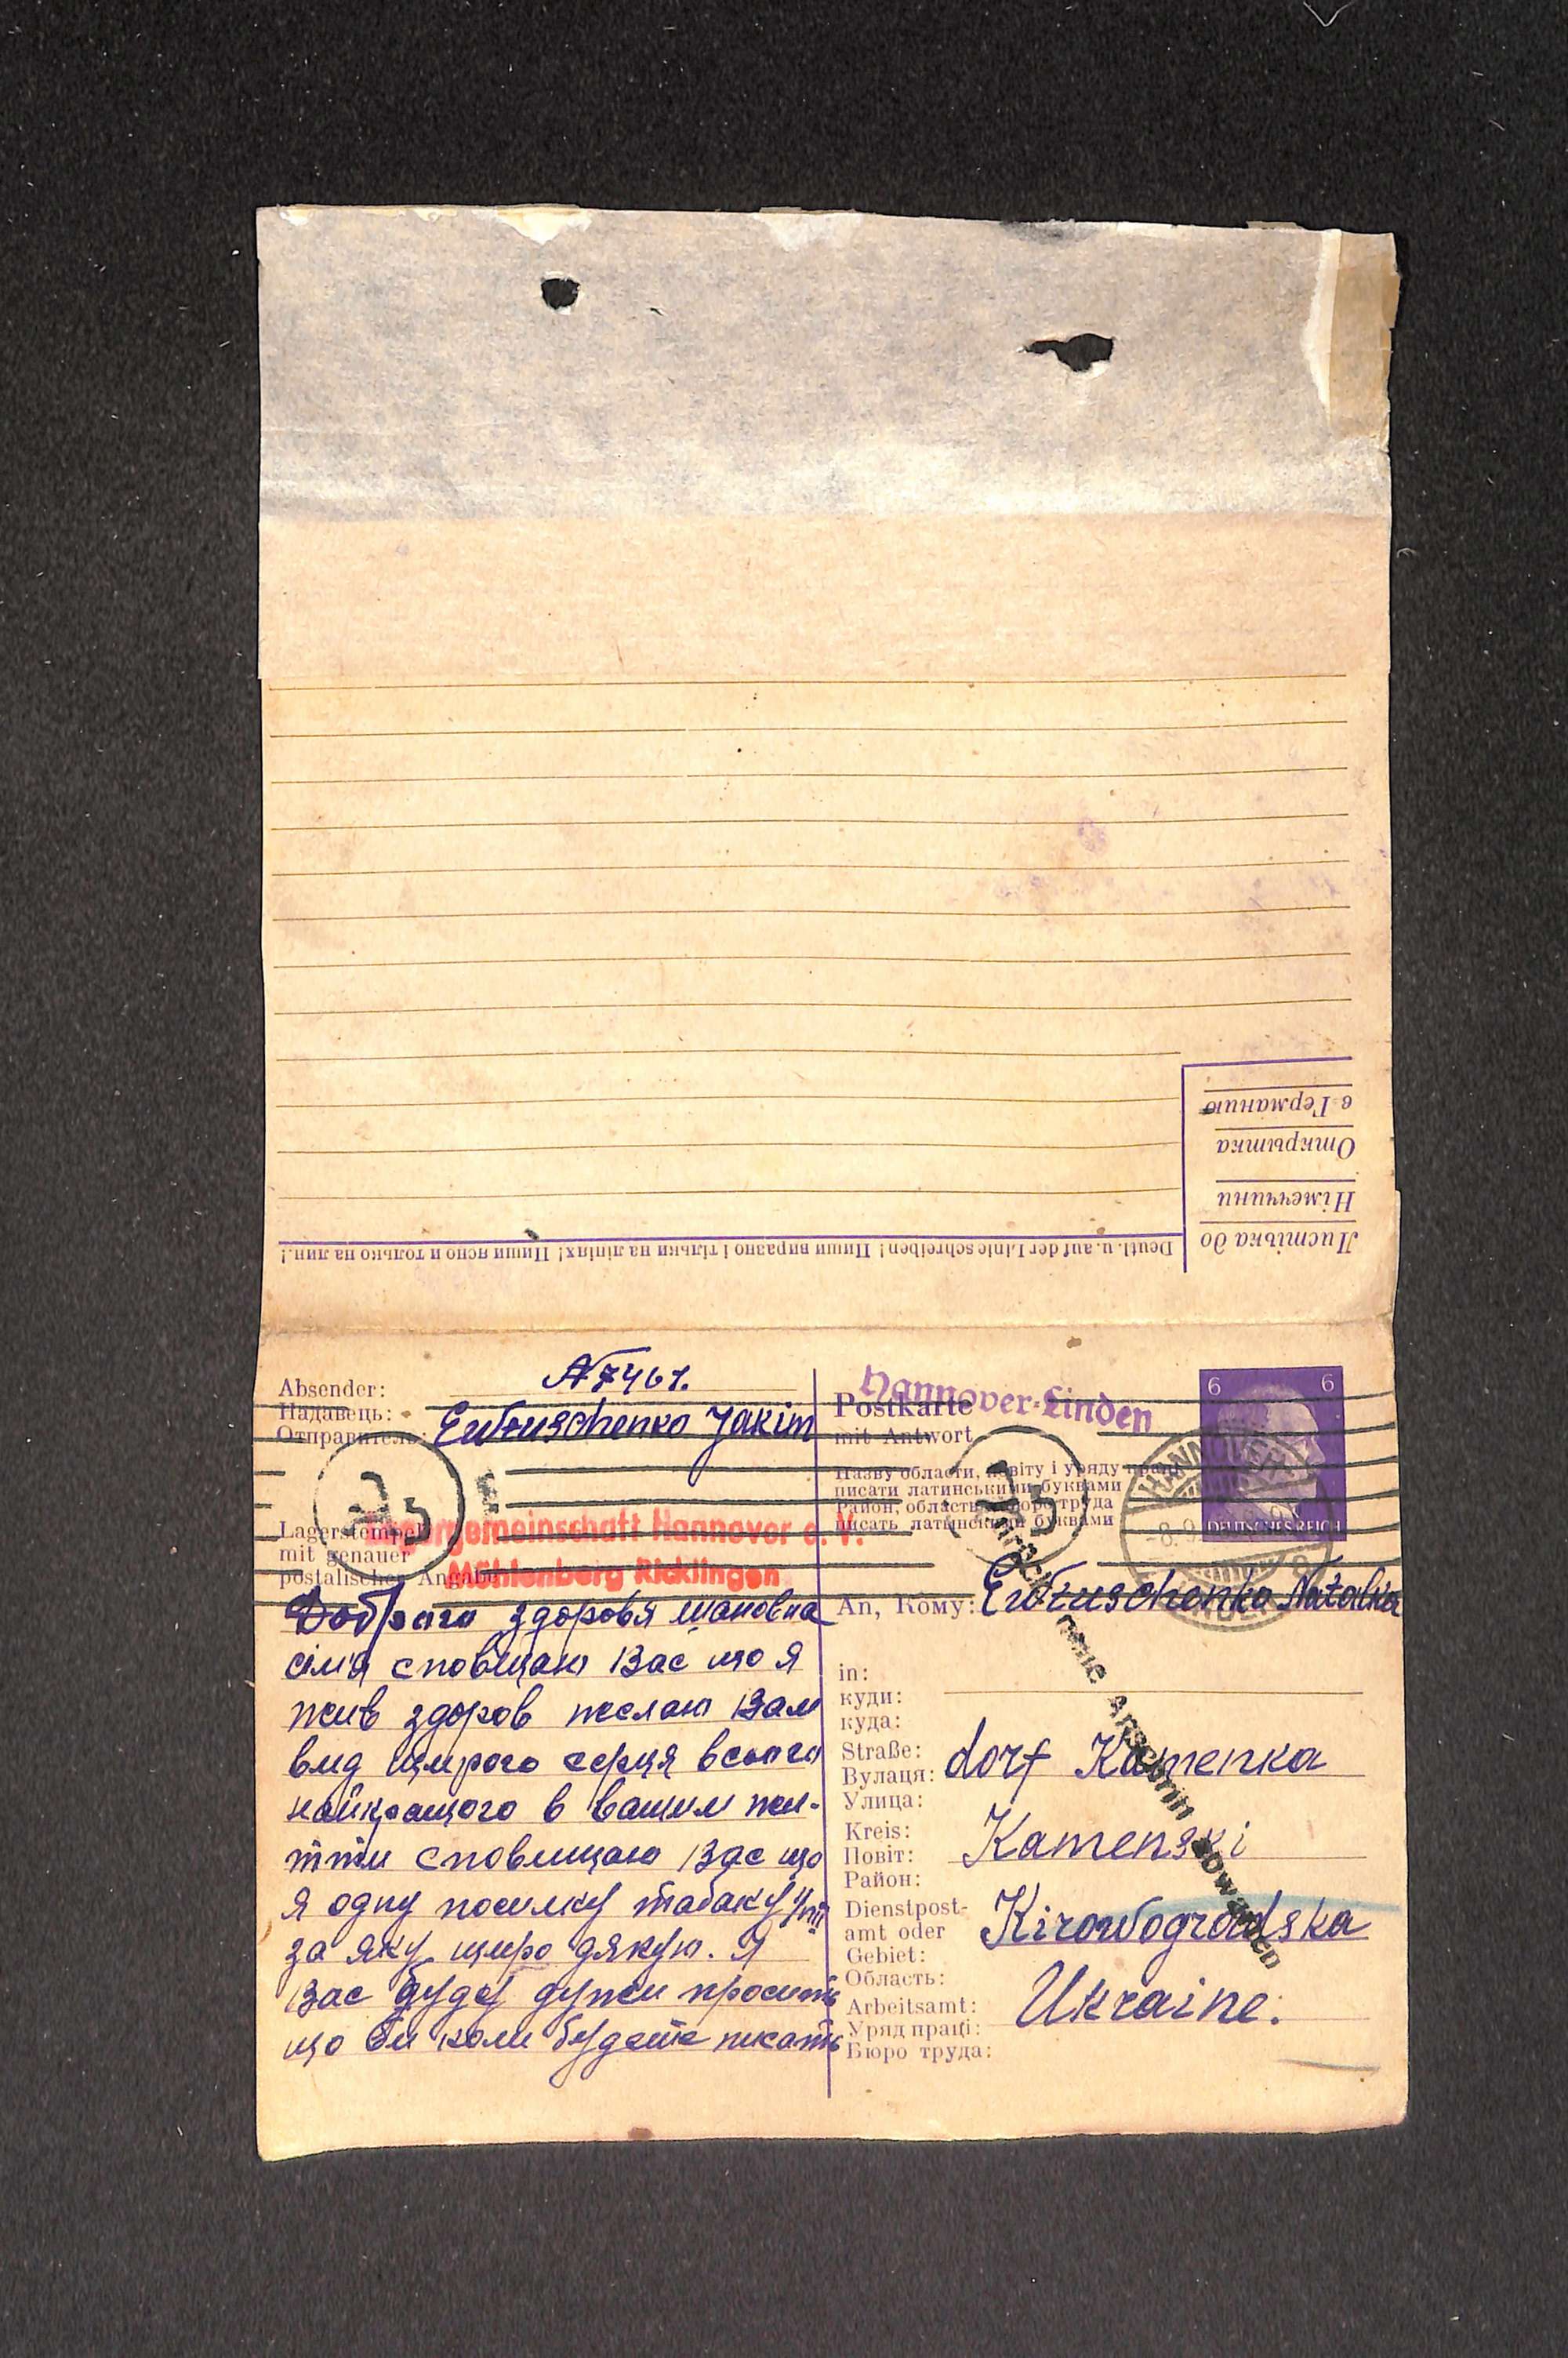 Листівка до
Німеччини
Открытка
в Германию
Deutl. u. auf der Linie schreiben! Пиши виразно і тільки на лініях! Пиши ясно и только на лин.!
Absender:
Надавець:
Отправитель:
N 7461.
Ewtuschenko Jakim
Lagerstempel
mit genauer
postalischer Angabe
Lagergemeinschaft Hannover e. V.
Mühlenberg Ricklingen
Доброго здоровя шановна
сімя сповіщаю Вас що я
жив здоров желаю Вам
вид щирого серця всього
найкращого в вашим жи-
тти сповищаю Вас що
я одну посилку табаку
за яку щиро дякую. Я
Вас буду дужи просить
що би коли будете писать
Hannover-Linden
Postkarte
mit Antwort
Назву области, повіту і уряду праці
писати латинськими буквами
Район, область, бюро труда
писать латинскими буквами
6 6
DEUTSCHES REICH
HANNOVER
LINDEN
Zurück
neue Anschrift abwarten
An, Кому: Ewtuschenko Natalka
in:
куди:
куда:
Straße:
Вулиця:
Улица:
dorf Kamenka
Kreis:
Повіт:
Район:
Kamenski
Dienstpost-
amt oder
Gebiet:
Область:
Kirowogradska
Arbeitsamt:
Уряд праці:
Бюро труда:
Ukraine.